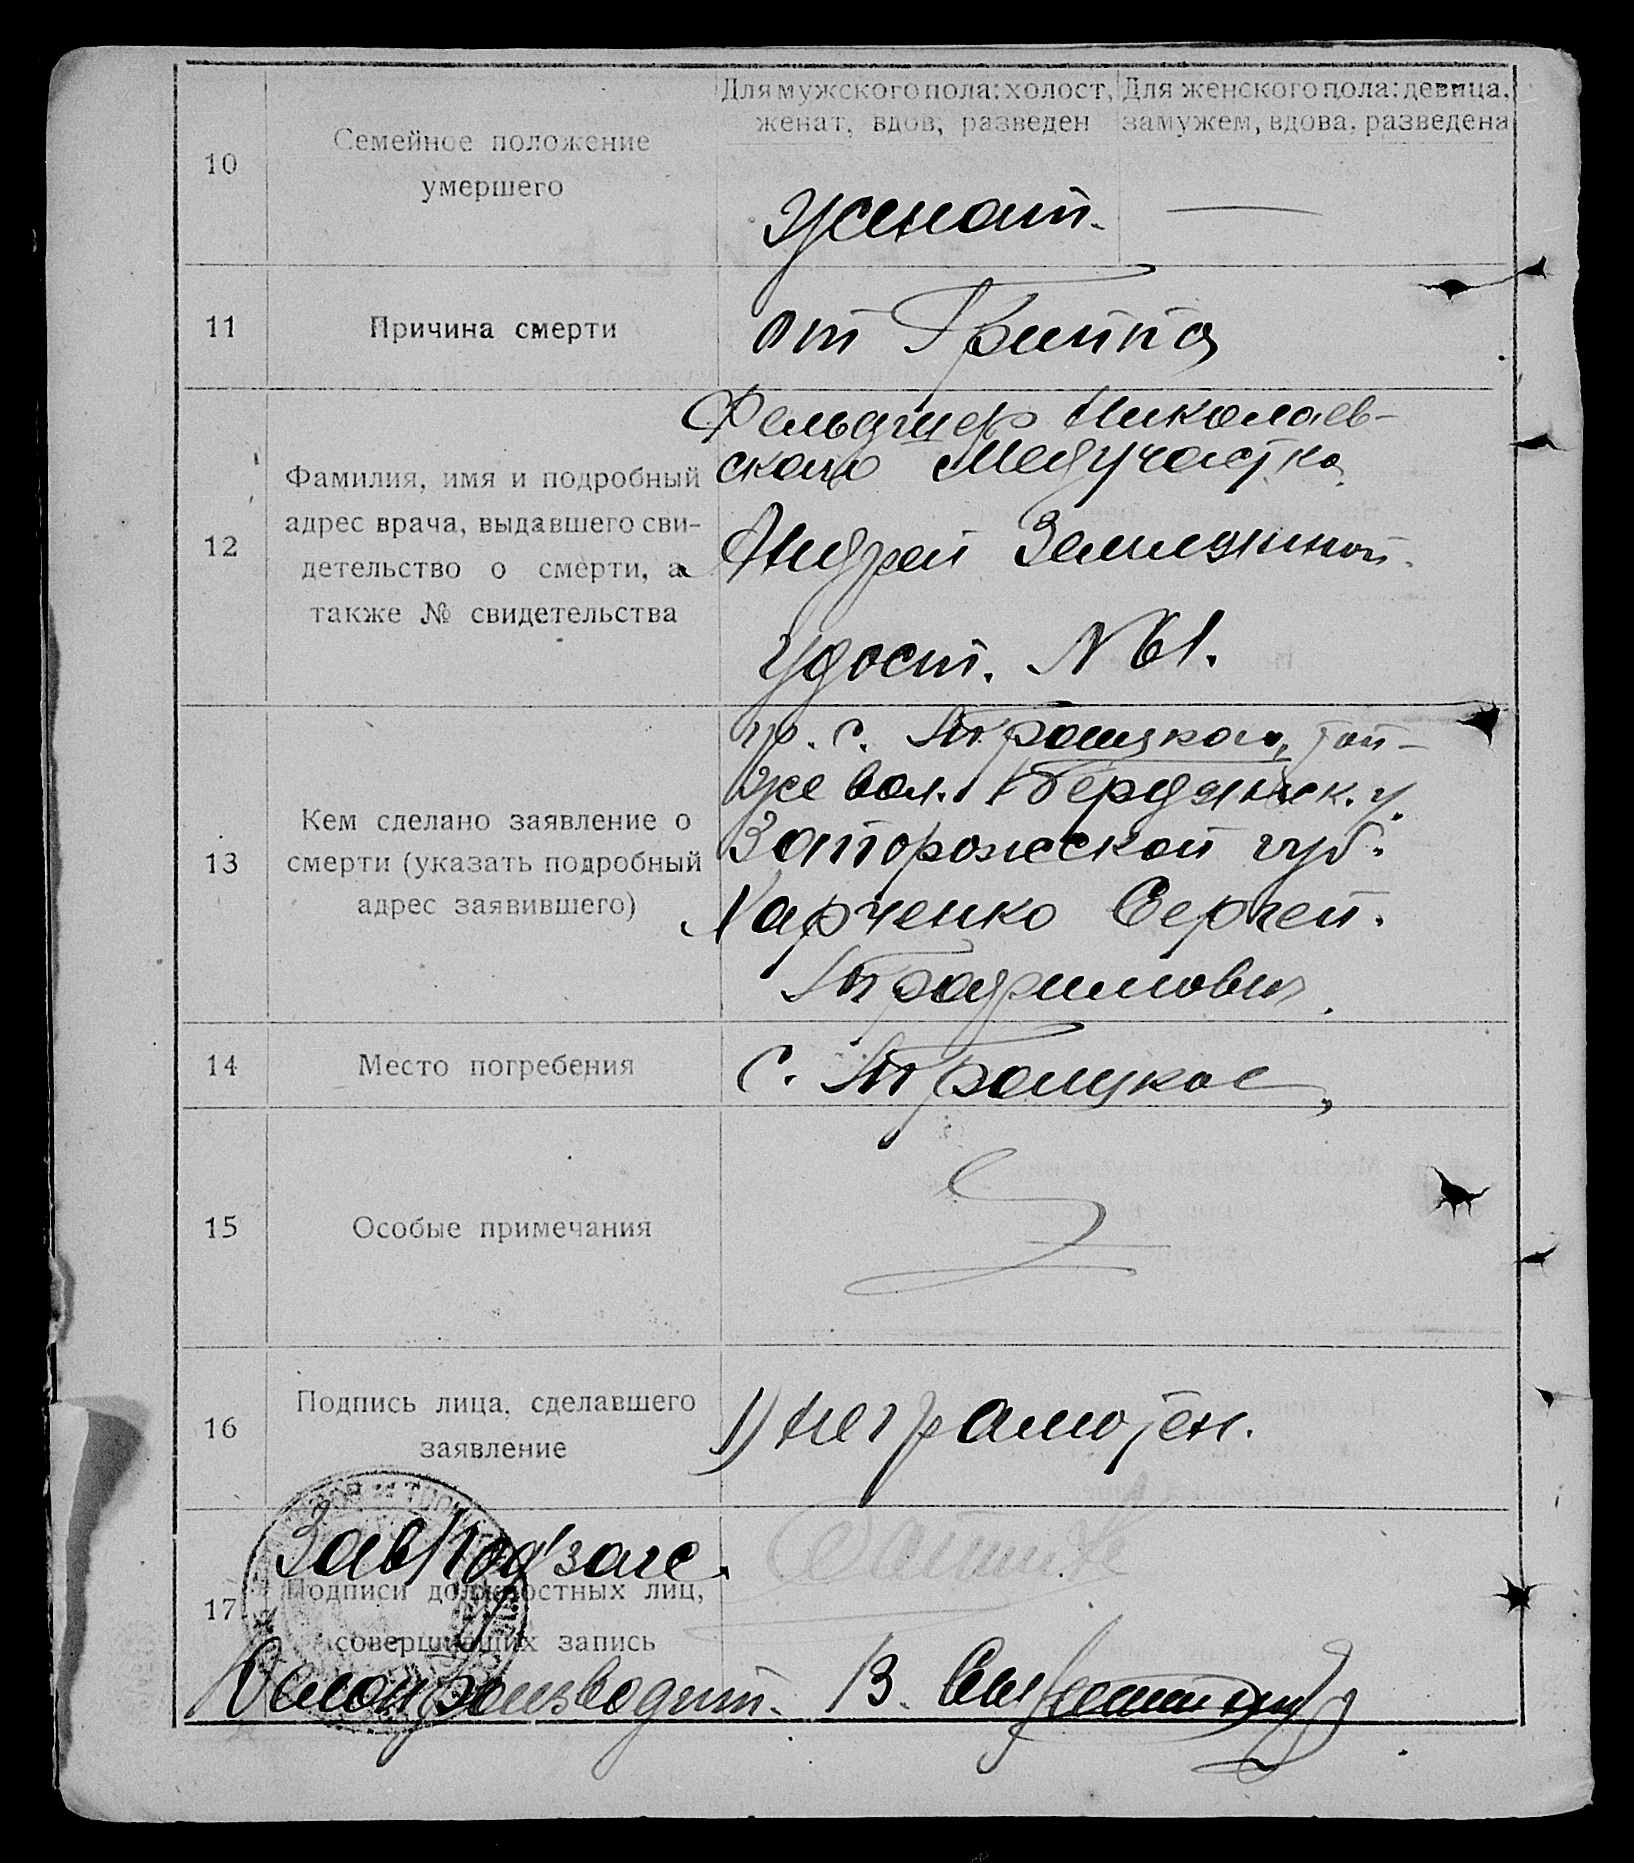 10
Семейное положение
умершего
Для мужского пола: холост,
женат, вдов, разведен
Для женского пола: девица,
замужем, вдова, разведена
Женат. —
11
Причина смерти
от Гриппа
12
Фамилия, имя и подробный
адрес врача, выдавшего сви-
детельство о смерти, а
также № свидетельства
Фельдшер Николаев-
ского Медучастка
Андрей
удост. №1.
13
Кем сделано заявление о
смерти (указать подробный
адрес заявившего)
гр. с. Троицкого, той-
же вол. Бердянск. у.
Запорожской губ.
Харченко Сергей.
Трофимович
14
Место погребения
С. Троицкое
15
Особые примечания
16
Подпись лица, сделавшего
заявление
1) Неграмотен.
17
Завподзагс.
Подписи должностных лиц,
совершивших запись
Делопроизводит. В.